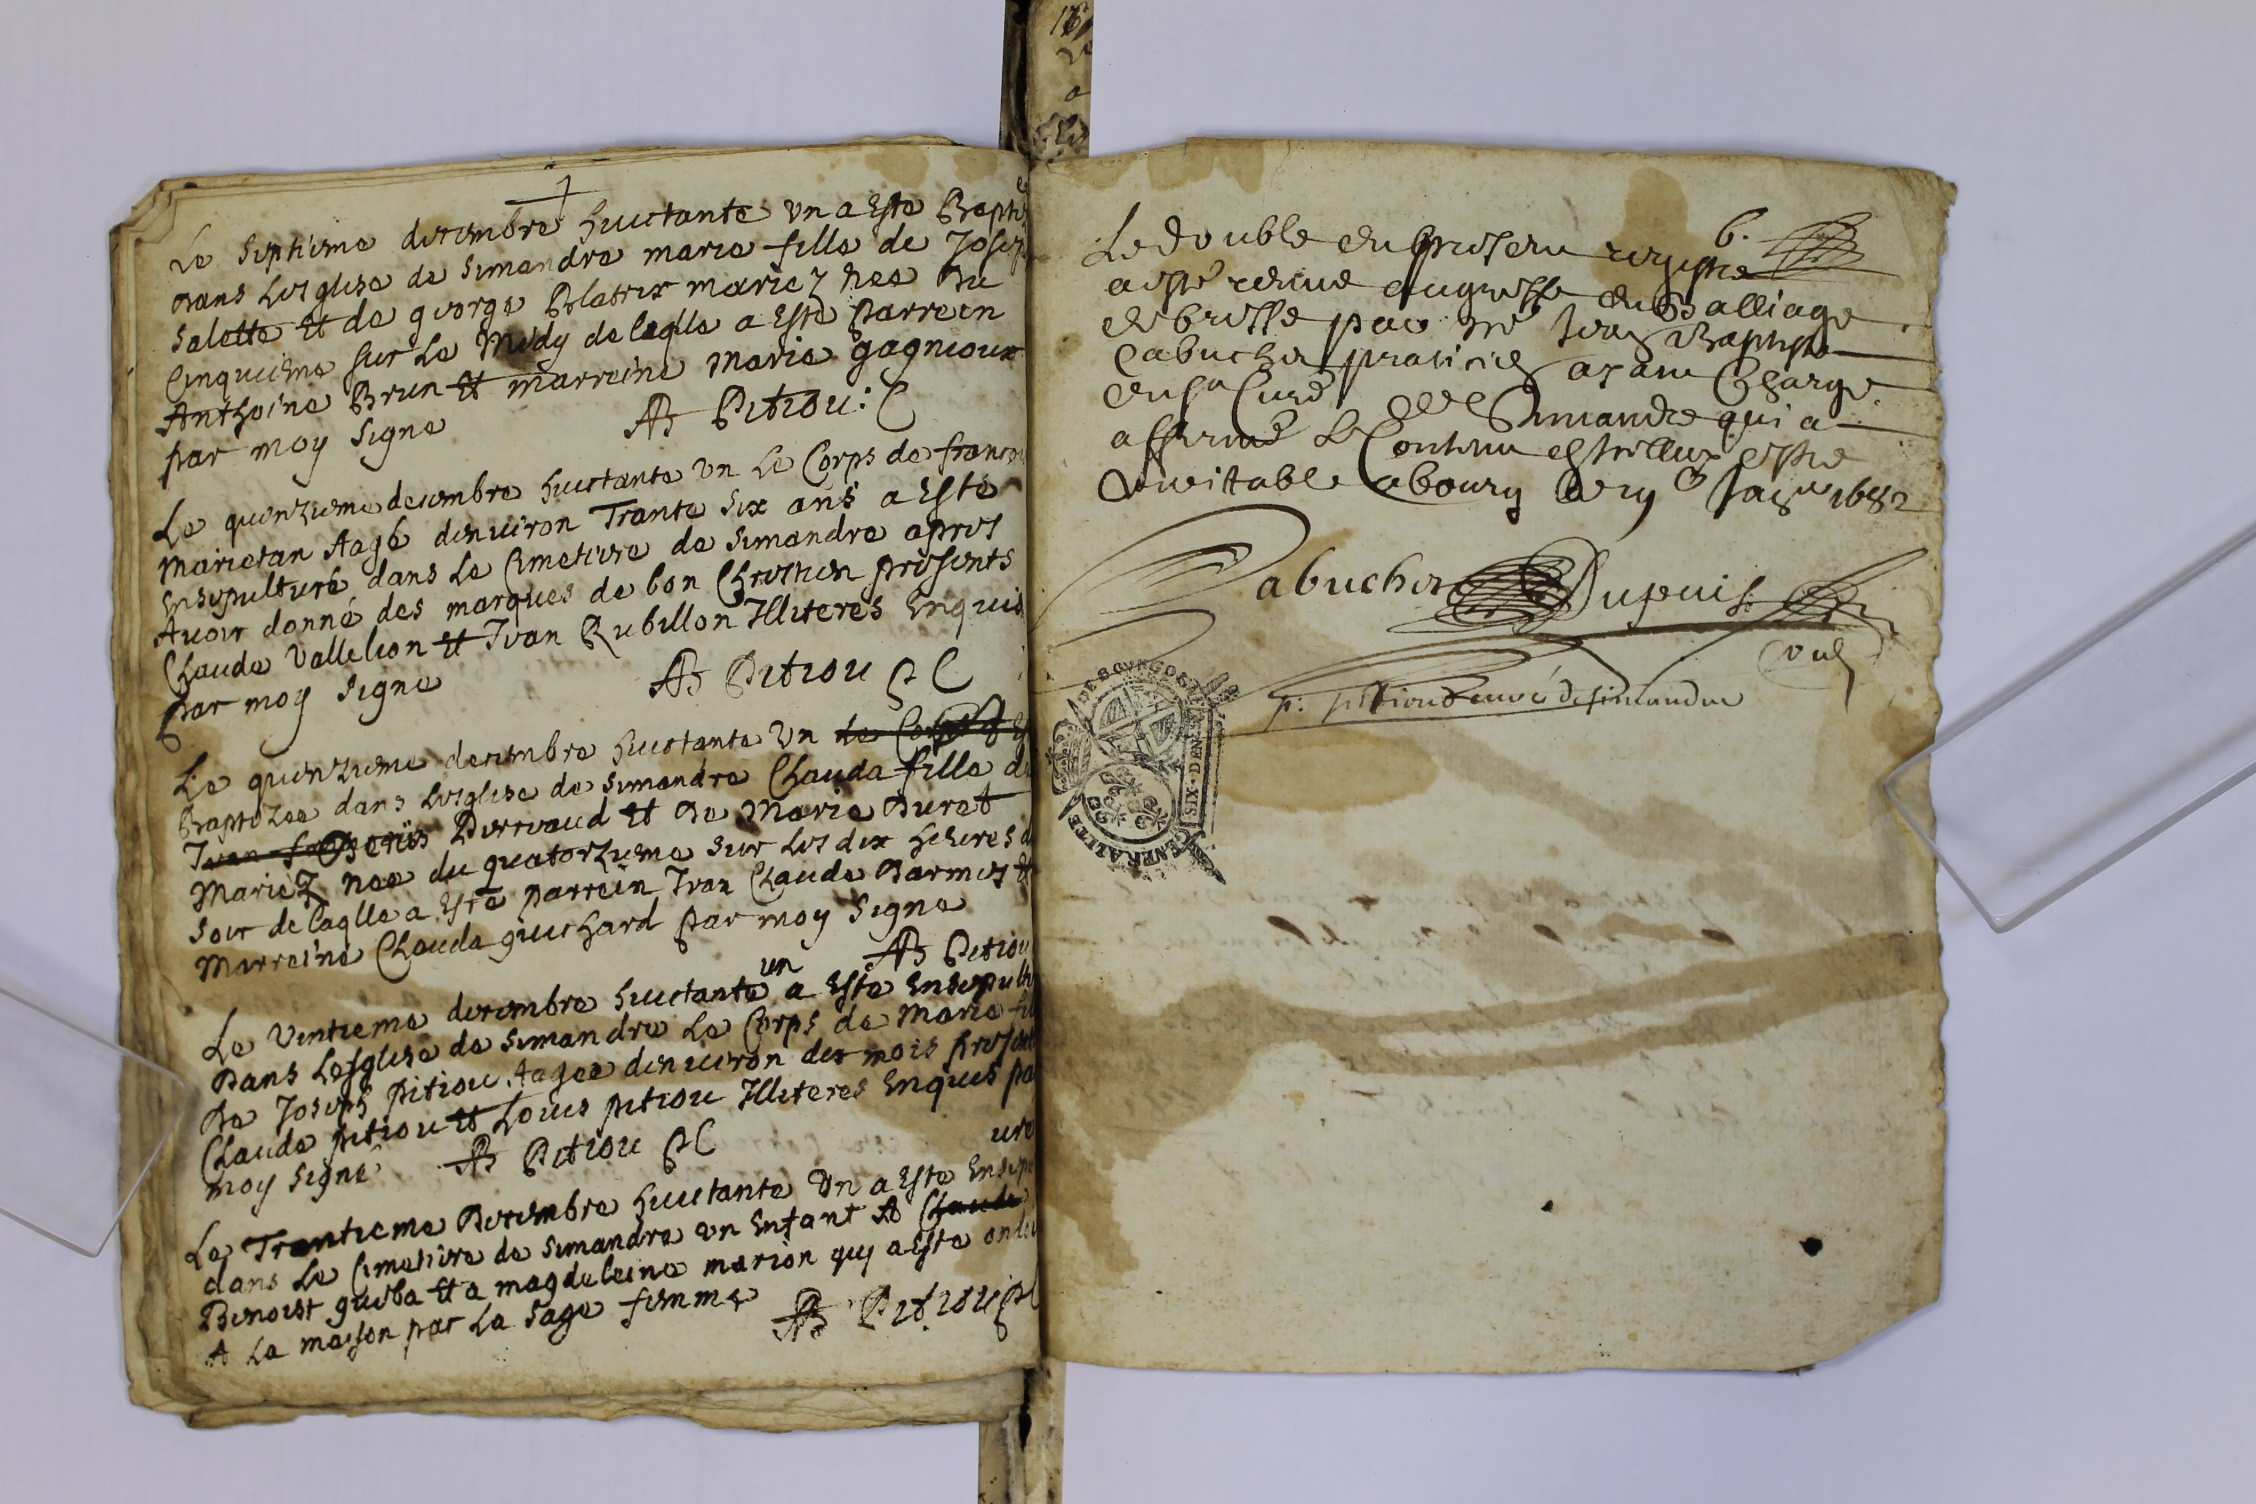 Le septieme decembre huictante un a Este Baptis
Dans Lesglise de simandre marie fille de Josep
salette Et de george Blatrix mariez nee Du
Cinquieme sur Le Midy de laqlle a Este parrein
Anthoine Brun Et marreine marie gagnieux
par moy signe AB Petiou: C
Le quinzieme decembre huictante un Le Corps de francois
marietan Aagé denuiron Trante six ans a Este
Ensepulturé dans Le Cimetiere de simandre apres
Auoir donné des marques de bon Chrestien presents
Claude Vallelion Et Jean Rubillon Illiteres Enquis
par moy signe AB Petiou PC
Le quinzieme decembre huictante un Le Corps
Baptizee dans Lesglise de simandre Clauda fille de
Jean Denis Perrvaud Et De Marie Buret
Mariez nee du quatorzieme sur les dix heures d
soir de laqlle a Este parrein Jean Claude Darmes Et
Marreine Clauda guichard par moy signe
AB Petiou
un
Le Vintieme decembre huictante a Este Ensepult
Dans Lesglise de simandre Le Corps de Marie fil
De Joseph Pitiou Aagee denuiron dix mois present
Claude petiou Et Louis petiou Illiteres Enquis pa
moy signé AB Petiou PC
ure
Le Trantieme Decembre huictante Un a Este Ensepu
dans Le Cimetiere de simandre un Enfant A Claude
Benoist guiba Et a magdeleine marion quj a Este ondo
A La maison par La sage femme AB Petiou PC
6.
Le double du present registre
a esté remis au greffe du Balliage
de bresse par Me Jean Baptiste
Cabuchet praticien ayant Charge
du sr Curé de Simandre qui a
affirmé Le Contenu estre
veritable a bourg le Janr 1682
Cabuchet Dupuis
p. pittiou curé de simandre
DE BOURGOGNE
SIX·DEN
GENERALITE